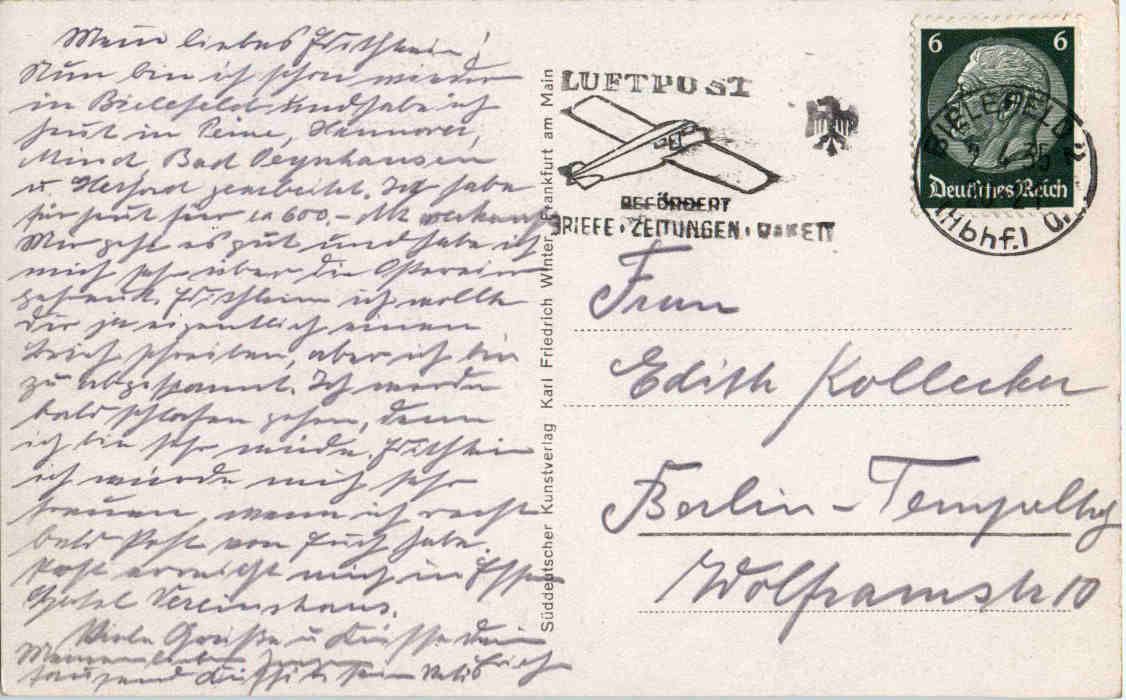 Mein liebes Edithlein!
Nun bin ich schon wieder
in Bielefeld und habe ich
heut in Peine, Hannover,
Mind, Bad Oeynhausen
u Herford gearbeitet. Ich habe
für heut für ca 600,- Mk verkauft
Mir geht es gut und habe ich
mich sehr über die Ostereier
gefreut. Edithlein ich wollte
Dir ja eigentlich einen
Brief schreiben, aber ich bin
zu abgespannt. Ich werde
bald schlafen gehen, denn
ich bin sehr müde. Edithlein
ich würde mich sehr
freuen, wenn ich recht
bald Post von Euch habe.
Post erreicht mich in Essen
Hotel Vereinshaus.
Viele Grüße u Küsse Dein
tausend Küsse
Süddeutscher Kunstverlag Karl Friedrich Winter, Frankfurt am Main
LUFTPOST
BEFÖRDERT
BRIEFE · ZEITUNGEN · PAKETE
6 6
Deutsches Reich
BIELEFELD 2
(Hbhf.)
Frau
Edith Kollecker
Berlin-Tempelhof
Wolframstr 10